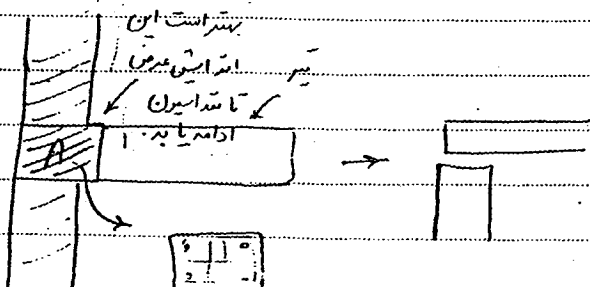 بهتر است این
افزایش عرض
تیر
تا فنداسیون
ادامه یابد.
A